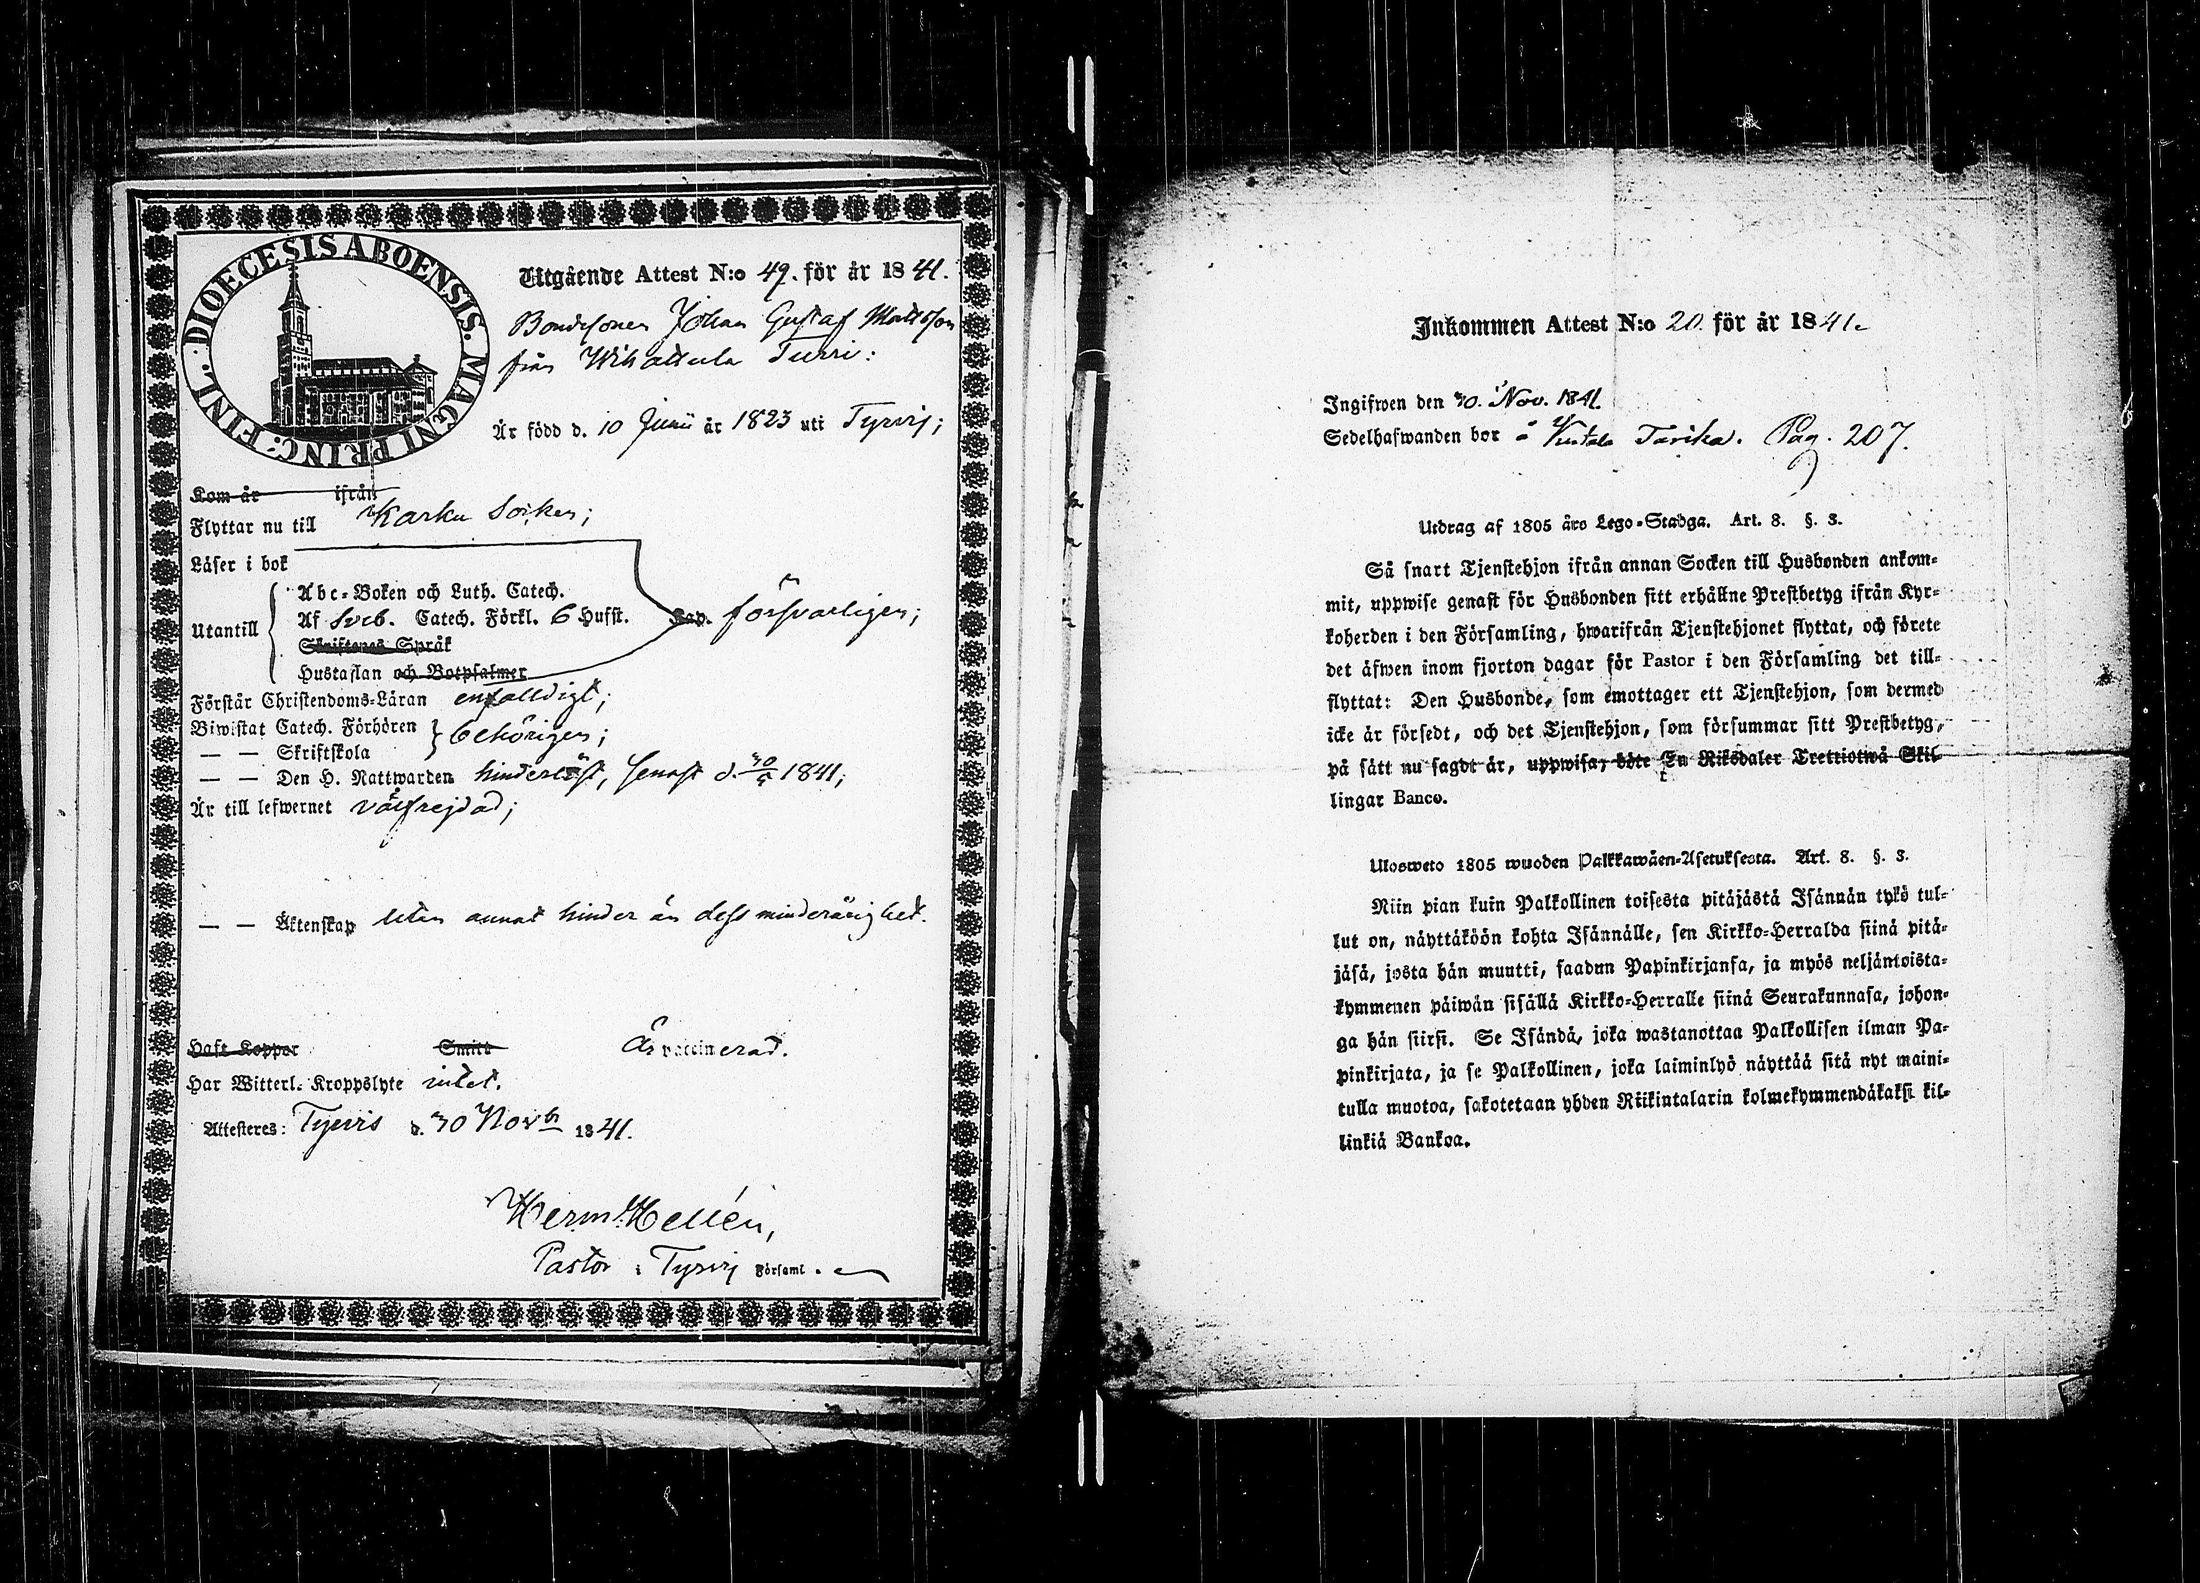 DIOECESIS ABOENSIS. MAGNI PRINC: FINL.:
Utgående Attest N:o 49. för år 1841.
Bondesonen Johan Gustaf Mattsson
från Wihattula Turri:
Är född d. 10 Junii år 1823 uti Tyrvis;
Kom år ifrån
Flyttar nu till Karku Socken;
Läser i bok
Abc-Boken och Luth. Catech.
Utantill Af Sveb. Catech. Förkl. 6 Hufst. Cap. försvarligen;
Skriftenes Språk
Hustaflan och Botpsalmer
Förstår Christendoms-Läran enfaldigt;
Biwistat Catech. Förhören behörigen;
— — Skriftskola
— — Den H. Nattwarden hinderlöst, senast d. 1841;
Är till lefwernet välfrejdad;
— — Äktenskap utan annat hinder än dess minderårighet.
Haft Koppor Smitt Är vaccinerad.
Har Witterl. Kroppslyte intet.
Attesteres: Tyrvis d. 30 Novbr 1841.
Herm. Hellén,
Pastor i Tyrvis Församl.
Inkommen Attest N:o 20. för år 1841.
Ingifwen den 30. Nov. 1841.
Sedelhafwanden bor å Tarika. Pag. 207.
Utdrag af 1805 års Lego-Stadga. Art. 8. §. 3.
Så snart Tjenstehjon ifrån annan Socken till Husbonden ankom-
mit, uppwise genast för Husbonden sitt erhållne Prestbetyg ifrån Kyr-
koherden i den Församling, hwarifrån Tjenstehjonet flyttat, och förete
det äfwen inom fjorton dagar för Pastor i den Församling det till-
flyttat: Den Husbonde, som emottager ett Tjenstehjon, som dermed
icke är försedt, och det Tjenstehjon, som försummar sitt Prestbetyg,
på sätt nu sagdt är, uppwisa, böte En Riksdaler Trettiotwå Skil-
lingar Banco.
Ulosweto 1805 wuoden Palkkawäen-Asetuksesta. Art. 8. §. 3.
Niin pian kuin Palkollinen toisesta pitäjästä Isännän tykö tul-
lut on, näyttäköön kohta Isännälle, sen Kirkko-Herralda siinä pitä-
jäsä, josta hän muutti, saadun Papinkirjansa, ja myös neljäntoista-
kymmenen päiwän sisällä Kirkko-Herralle siinä Seurakunnasa, johon-
ga hän siirsi. Se Isändä, joka wastanottaa Palkollisen ilman Pa-
pinkirjata, ja se Palkollinen, joka laiminlyö näyttää sitä nyt maini-
tulla muotoa, sakotetaan yhden Riikintalarin kolmekymmendäkaksi kil-
linkiä Bankoa.